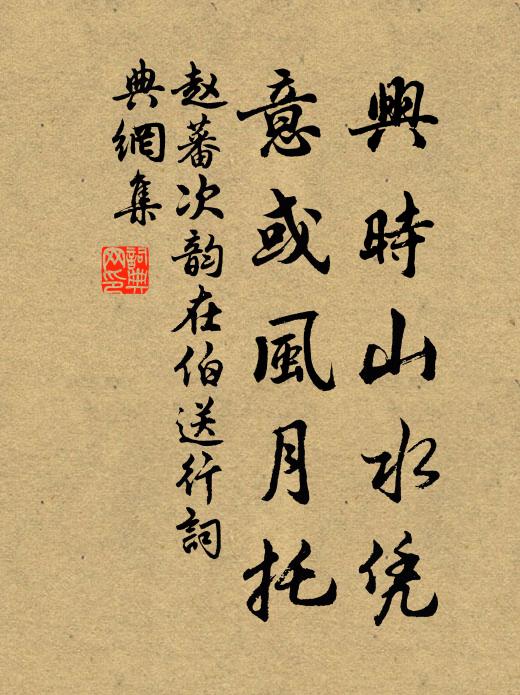 興時山水凭
意或風月托
赵蕃次韵在伯送行詞
典網集
詞典網印